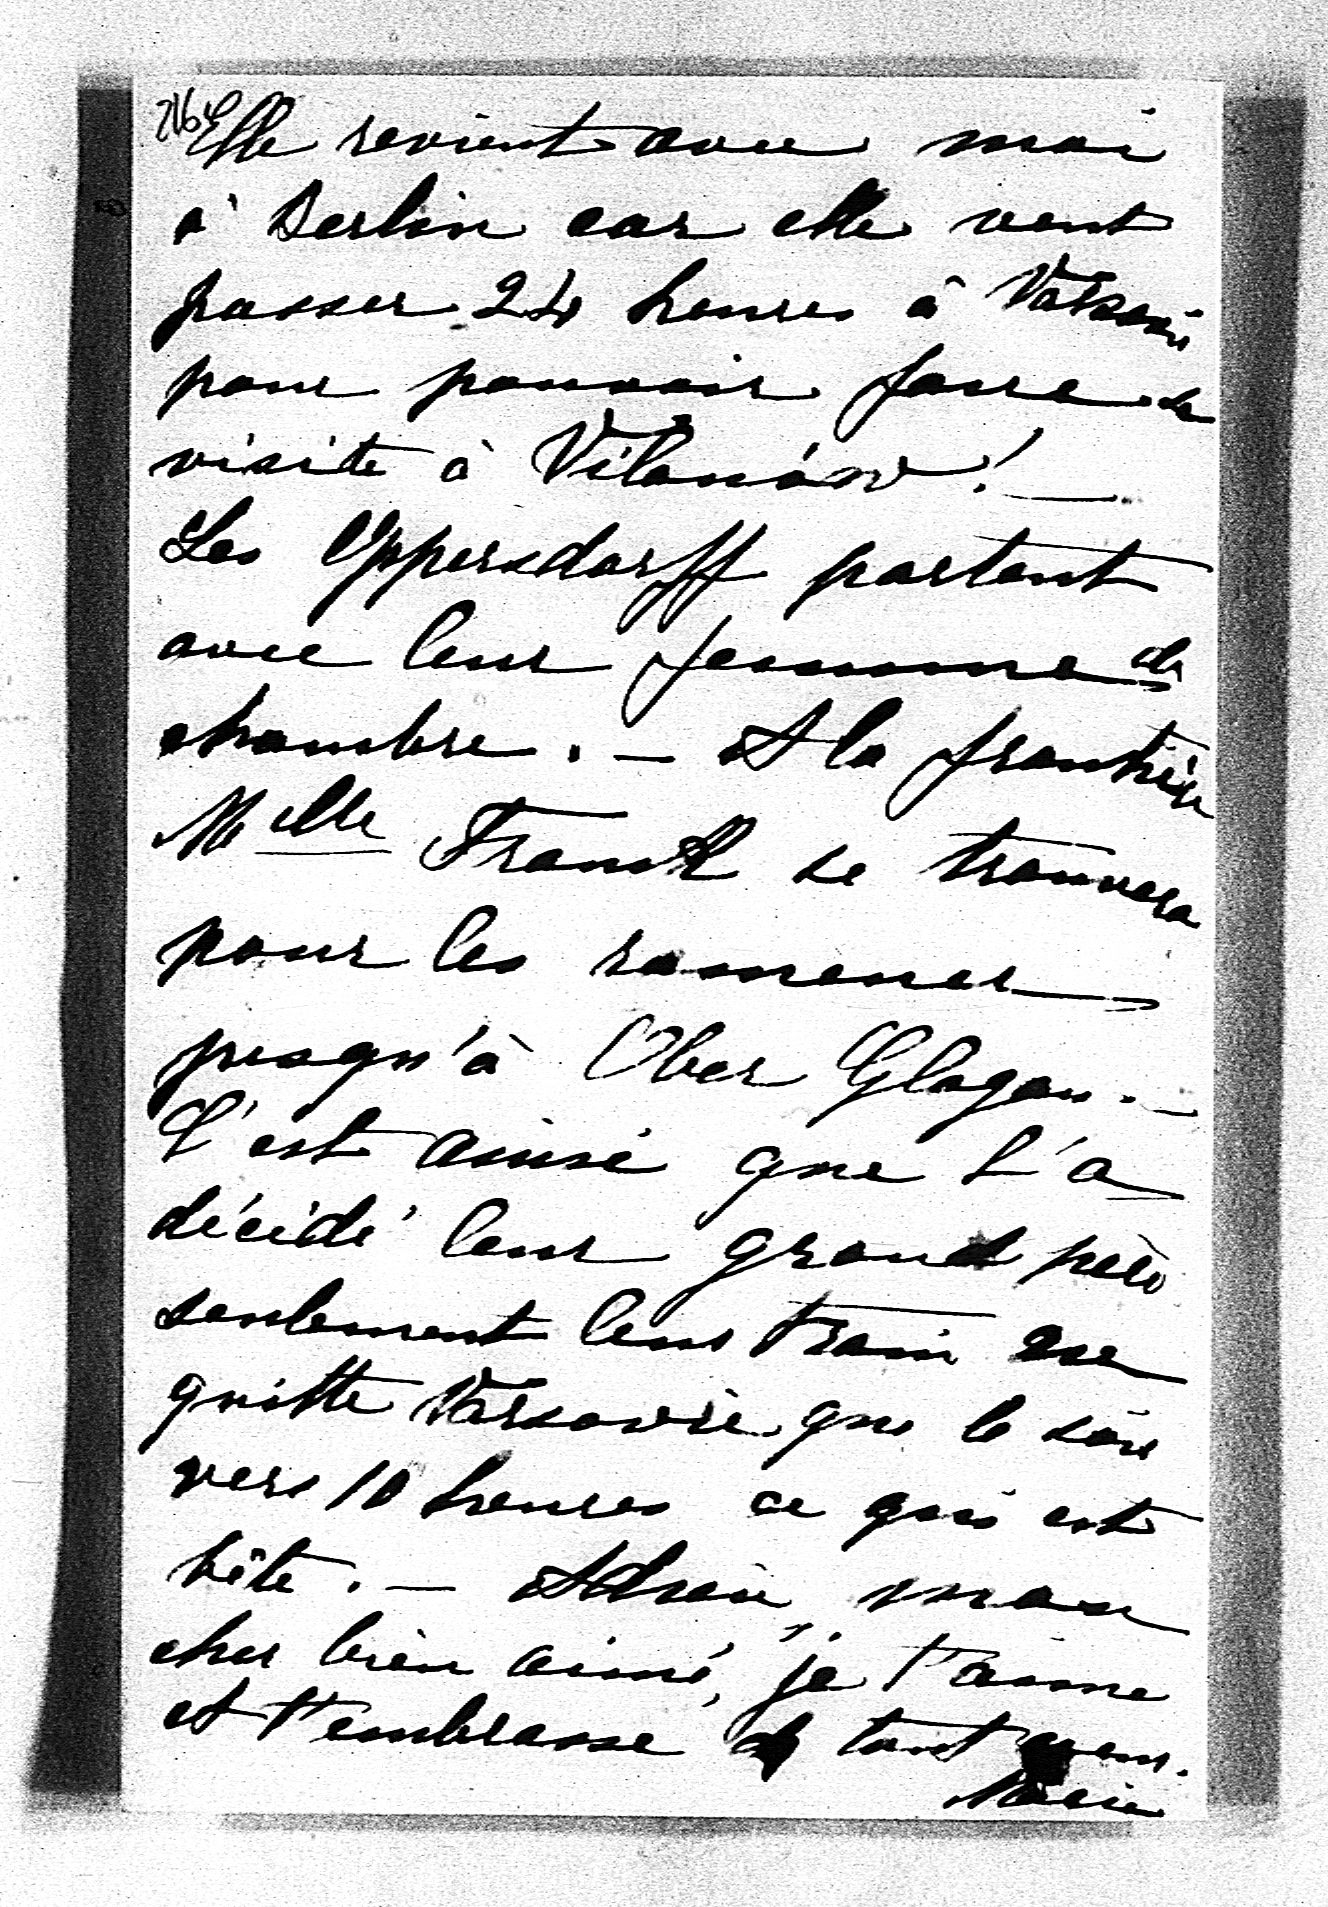 Elle revient avec moi
à Berlin car elle veut
passer 24 heures à Varsovie
pour pouvoir faire sa
visite à Vilanów! —
Les Oppersdorff partent
avec leur femme de
chambre. — A la frontière
Melle Franck se trouvera
pour les ramener
jusqu'à Ober Glogau. —
C'est ainsi que l'a
décidé leur grand père
seulement leur train ne
quitte Varsovie que le soir
vers 10 heures ce qui est
bête. — Adieu, mon
cher bien aimé, je t'aime
et t'embrasse de tout cœur.
Marie